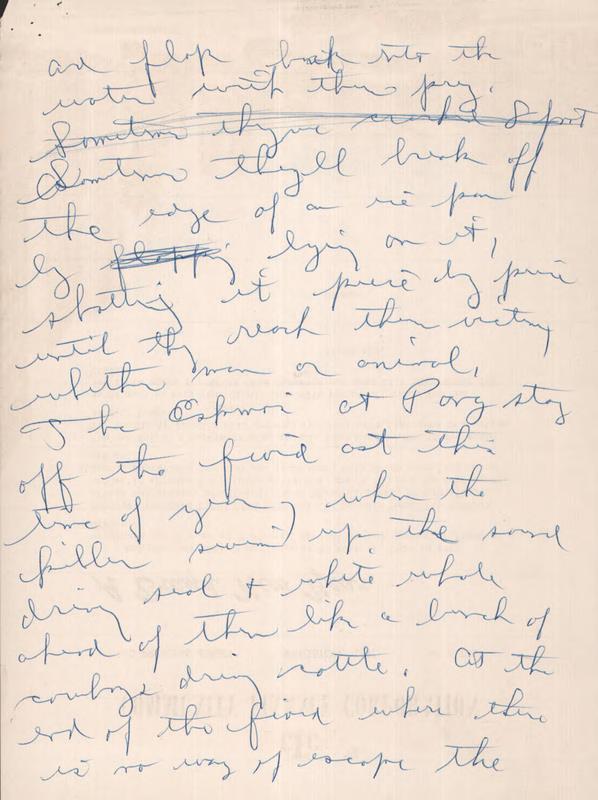 and flop back into the
water with their prey.
~~Sometimes theyve crushed & fort~~
Sometimes they'll break off
the edge of an ice pan
by ~~flopping~~ lying on it,
shattering it piece by piece
until they reach their victim,
whether man or animal.
The Eskimoi at Pong stay
off the fiord ast this
time of year, when the
killer swims up the sound
driving seal & white whale
ahead of them like a bunch of
cowboys driving cattle. At the
end of the fiord where there
is no way of escape the